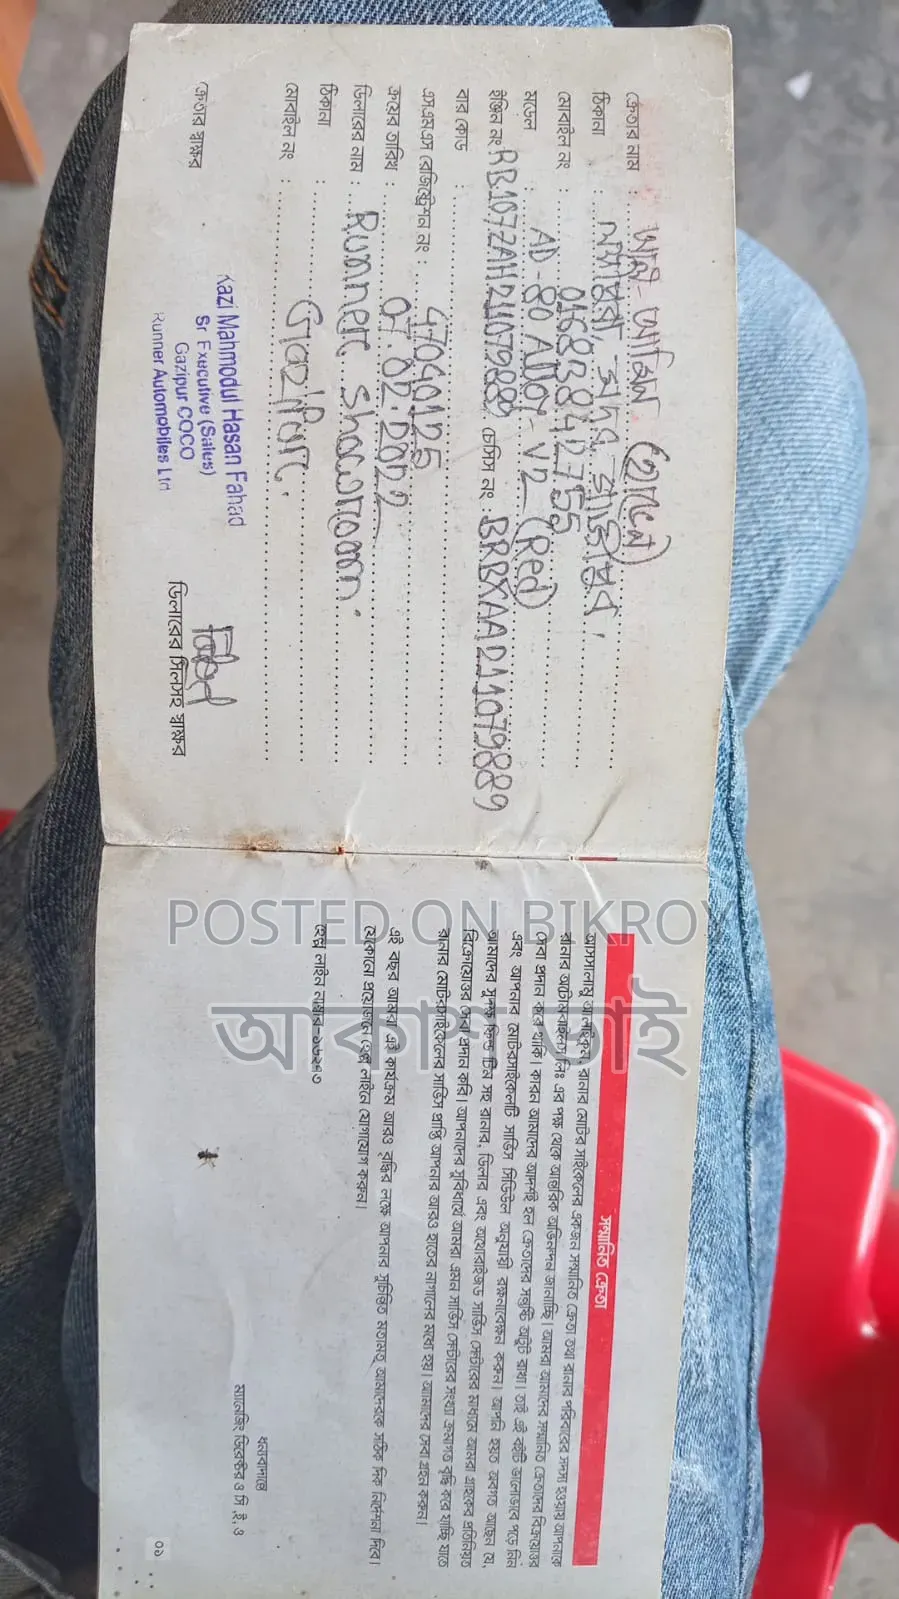 ক্রেতার নাম :
ঠিকানা :
মোবাইল নং : 01683842755
মডেল : AD-80 Alloy-V2 (Red)
ইঞ্জিন নং চেসিস নং BRBXAA211079889
বার কোড :
এসএমএস রেজিস্ট্রেশন নং : 4709125
ক্রয়ের তারিখ : 07.02.2022
ডিলারের নাম : Runner Showroom.
ঠিকানা : Gazipur.
মোবাইল নং :
Kazi Mahmodul Hasan Fahad
Sr Executive (Sales)
Gazipur COCO
Runner Automobiles Ltd
ক্রেতার স্বাক্ষর ডিলারের সিলসহ স্বাক্ষর
সম্মানিত ক্রেতা
আসসালামু আলাইকুম, রানার মোটর সাইকেলের একজন সম্মানিত ক্রেতা তথা রানার পরিবারের সদস্য হওয়ায় আপনাকে
রানার অটোমোবাইলস লিঃ এর পক্ষ থেকে আন্তরিক অভিনন্দন জানাচ্ছি। আমরা আমাদের সম্মানিত ক্রেতাদের বিক্রয়োত্তর
সেবা প্রদান করে থাকি। কারন আমাদের আদর্শই হল ক্রেতাদের সন্তুষ্টি অটুট রাখা। তাই এই বইটি ভালোভাবে পড়ে নিন
এবং আপনার মোটরসাইকেলটি সার্ভিস সিডিউল অনুযায়ী রক্ষনাবেক্ষন করুন। আপনি হয়ত অবগত আছেন যে,
আমাদের সুদক্ষ ফিল্ড টিম সহ রানার, ডিলার এবং অথোরাইজড সার্ভিস সেন্টারের মাধ্যমে আমরা গ্রাহকের প্রতিনিয়ত
বিক্রয়োত্তর সেবা প্রদান করি। আপনাদের সুবিধার্থে আমরা এমন সার্ভিস সেন্টারের সংখ্যা ক্রমাগত বৃদ্ধি করে যাচ্ছি যাতে
রানার মোটরসাইকেলের সার্ভিস প্রাপ্তি আপনার আরও হাতের নাগালের মধ্যে হয়। আমাদের সেবা গ্রহন করুন।
এই বছর আমরা এই কার্যক্রম আরও বৃদ্ধির লক্ষে আপনার সুচিন্তিত মতামত আমাদেরকে সঠিক দিক নির্দেশনা দিবে।
যেকোনো প্রয়োজনে হেল্প লাইনে যোগাযোগ করুন।
হেল্প লাইন নাম্বার-১৬২৪৩
ধন্যবাদান্তে
ম্যানেজিং ডিরেক্টর ও সি ই, ও
০১
POSTED ON BIKROY